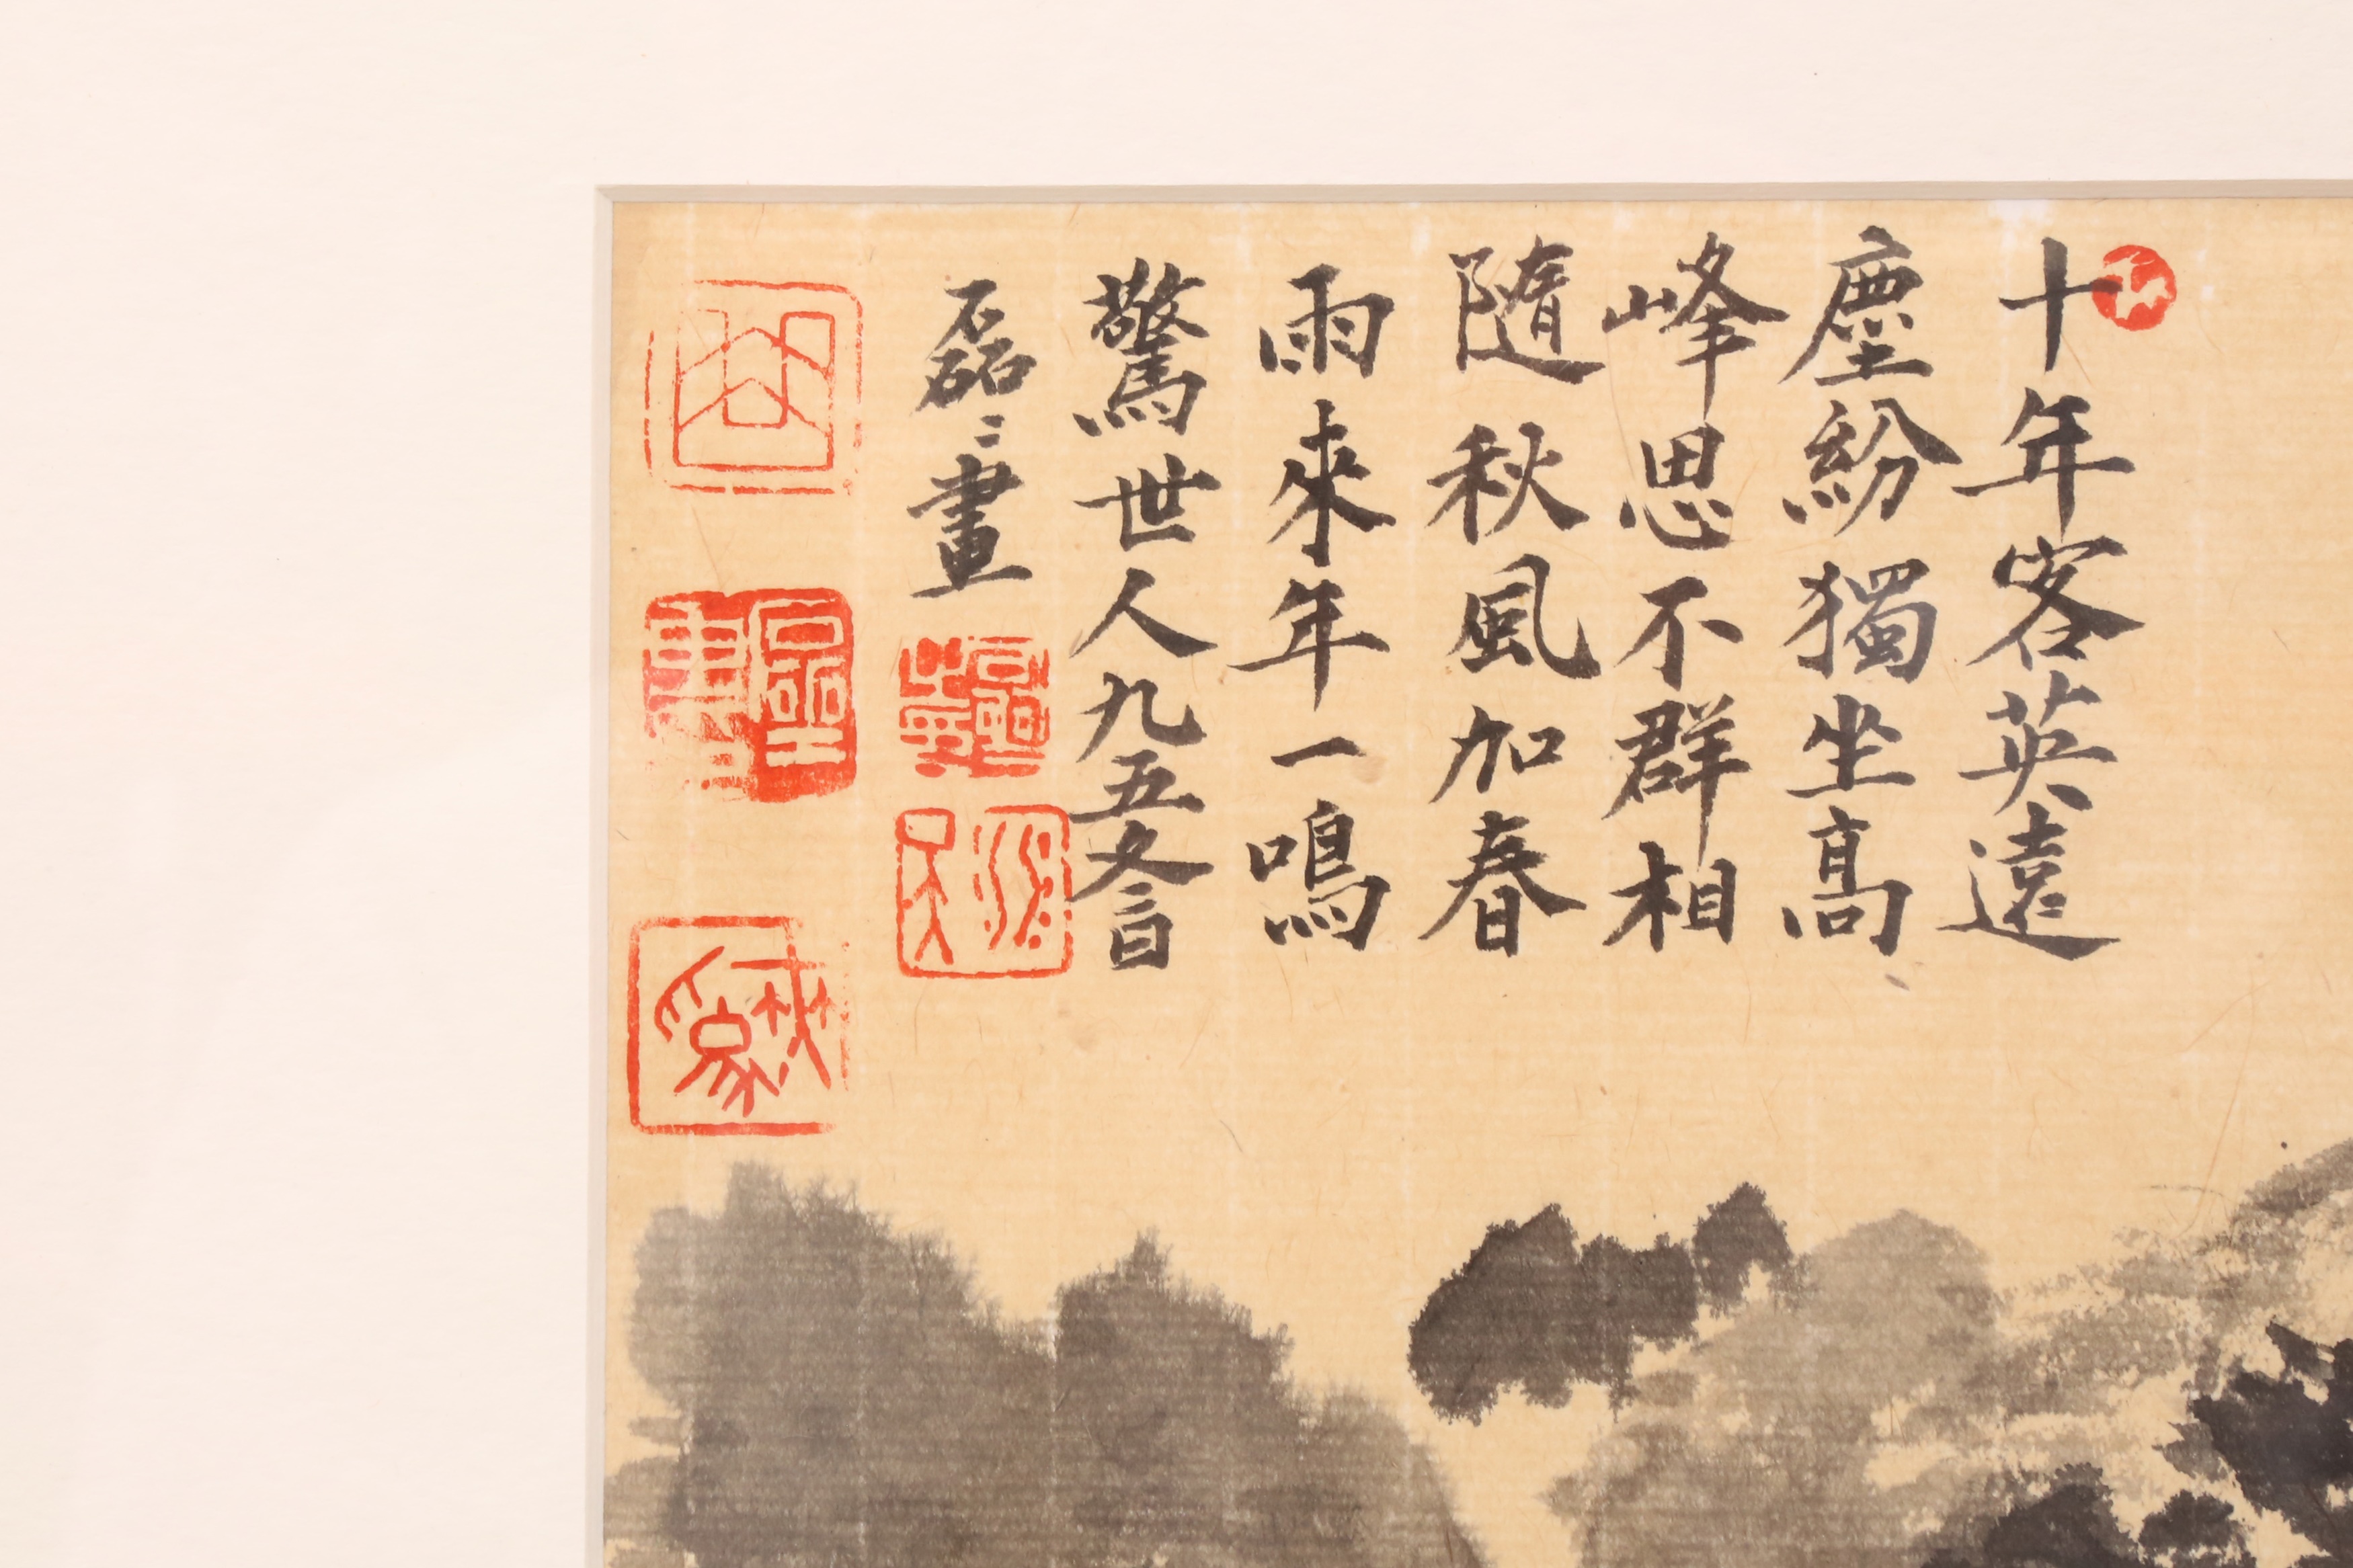 十年客英遠
塵紛獨坐高
峰思不群相
隨秋風加春
雨來年一鳴
驚世人九五冬言
磊〻畫